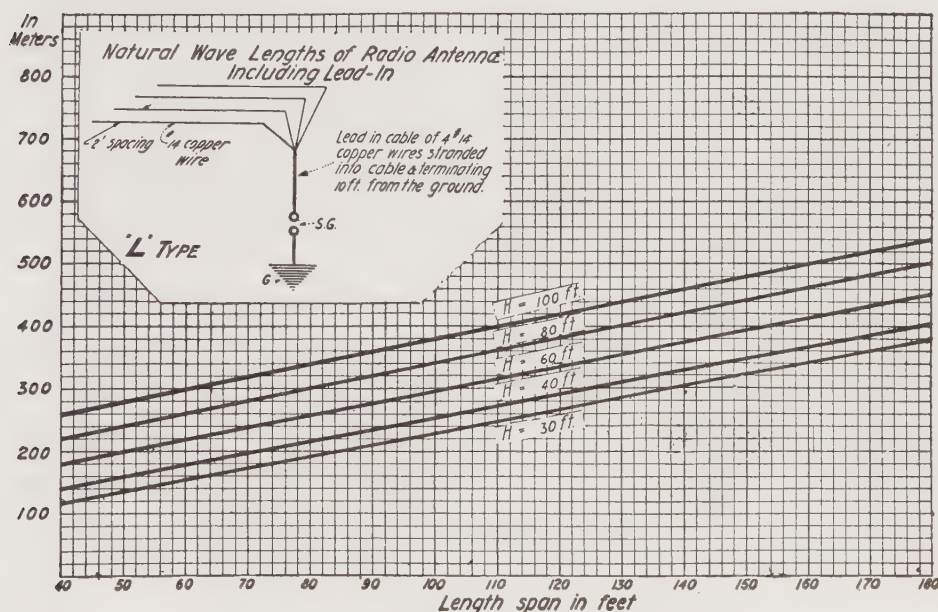 In
Meters
800
700
600
500
400
300
200
100
Natural Wave Lengths of Radio Antennæ
Including Lead-In
2' spacing
#14 copper
wire
Lead in cable of 4 #14
copper wires stranded
into cable & terminating
10ft. from the ground.
S.G.
"L" TYPE
G
H = 100 ft
H = 80 ft
H = 60 ft
H = 40 ft
H = 30 ft
40 50 60 70 80 90 100 110 120 130 140 150 160 170 180
Length span in feet